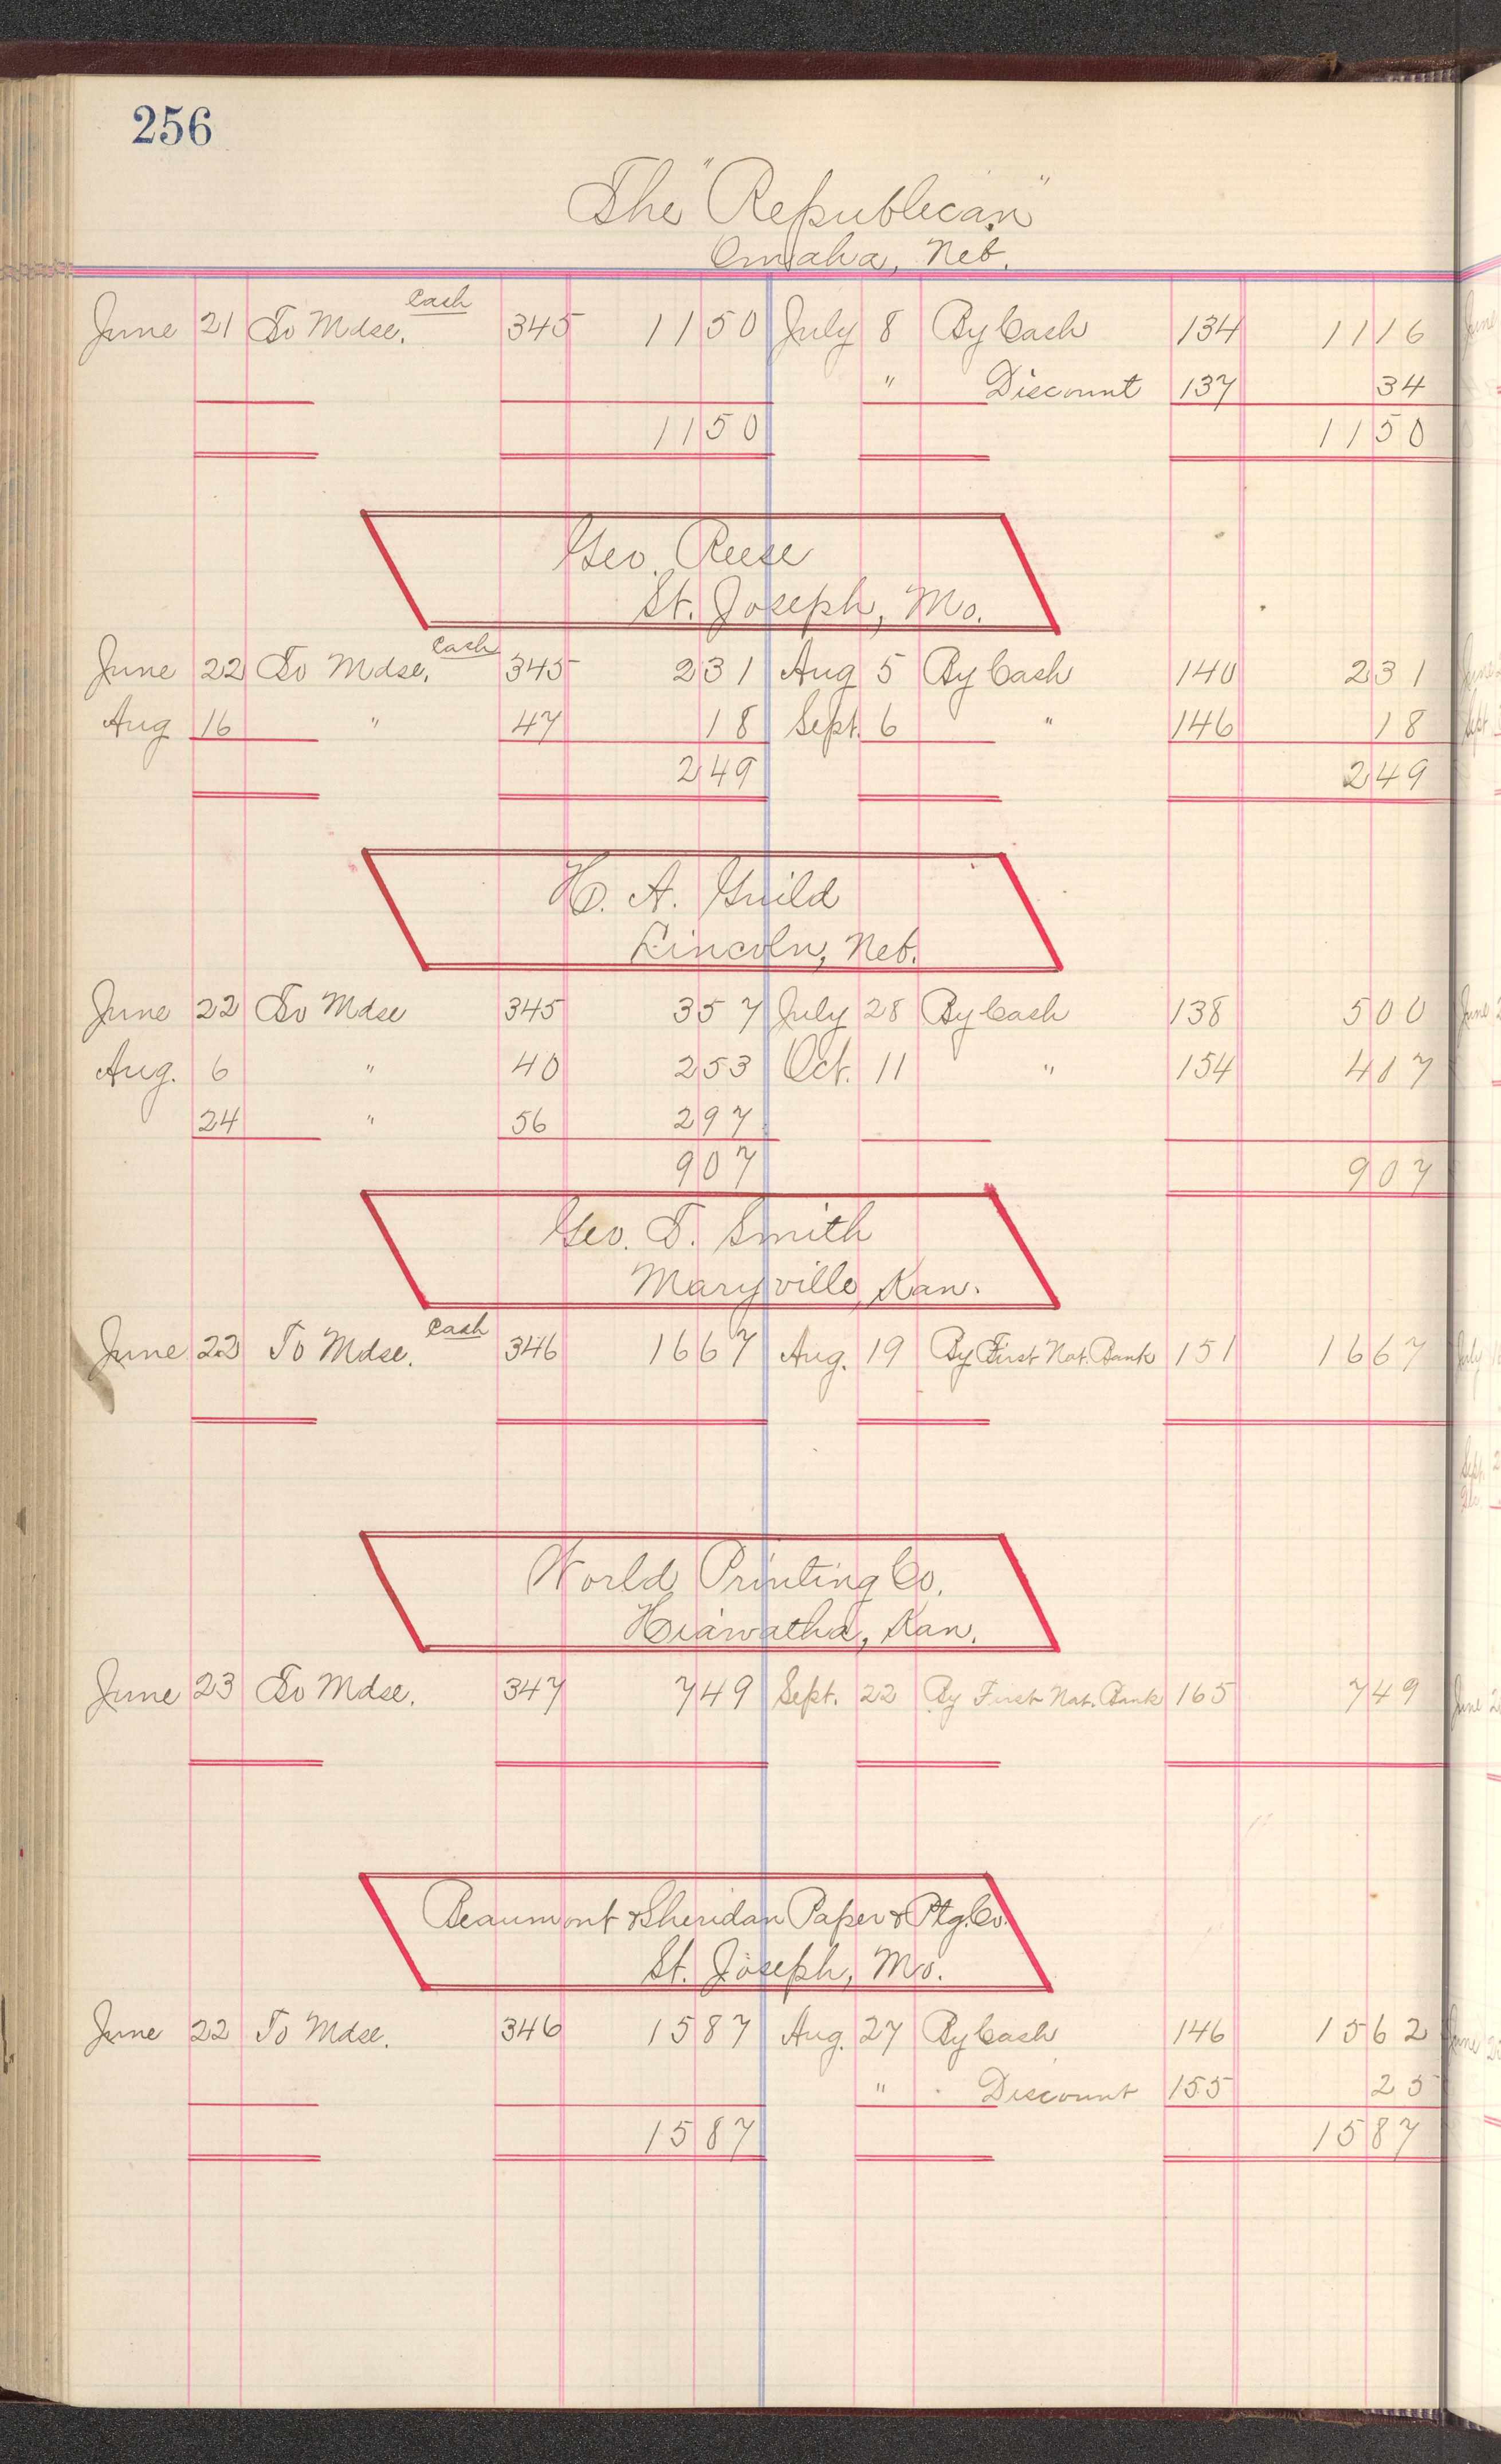 256
The "Republican"
Omaha, Neb.
June 21 To Mdse. Cash 345 11 50 July 8 By Cash 134 11 16
" Discount 137 34
11 50 11 50
Geo. Reese
St. Joseph, Mo.
June 22 To Mdse. Cash 345 2 31 Aug 5 By Cash 140 2 31
Aug 16 " 47 18 Sept. 6 " 146 18
2 49 2 49
H. A. Guild
Lincoln, Neb.
June 22 To Mdse 345 3 57 July 28 By Cash 138 5 00
Aug. 6 " 40 2 53 Oct. 11 " 154 4 07
24 " 56 2 97
9 07 9 07
Geo. T. Smith
Maryville, Kan.
June 22 To Mdse. Cash 346 16 67 Aug. 19 By First Nat. Bank 151 16 67
World Printing Co.
Hiawatha, Kan.
June 23 To Mdse. 347 7 49 Sept. 22 By First Nat. Bank 165 7 49
Beaumont & Sheridan Paper & Ptg. Co.
St. Joseph, Mo.
June 22 To Mdse. 346 15 87 Aug. 27 By Cash 146 15 62
" Discount 155 25
15 87 15 87